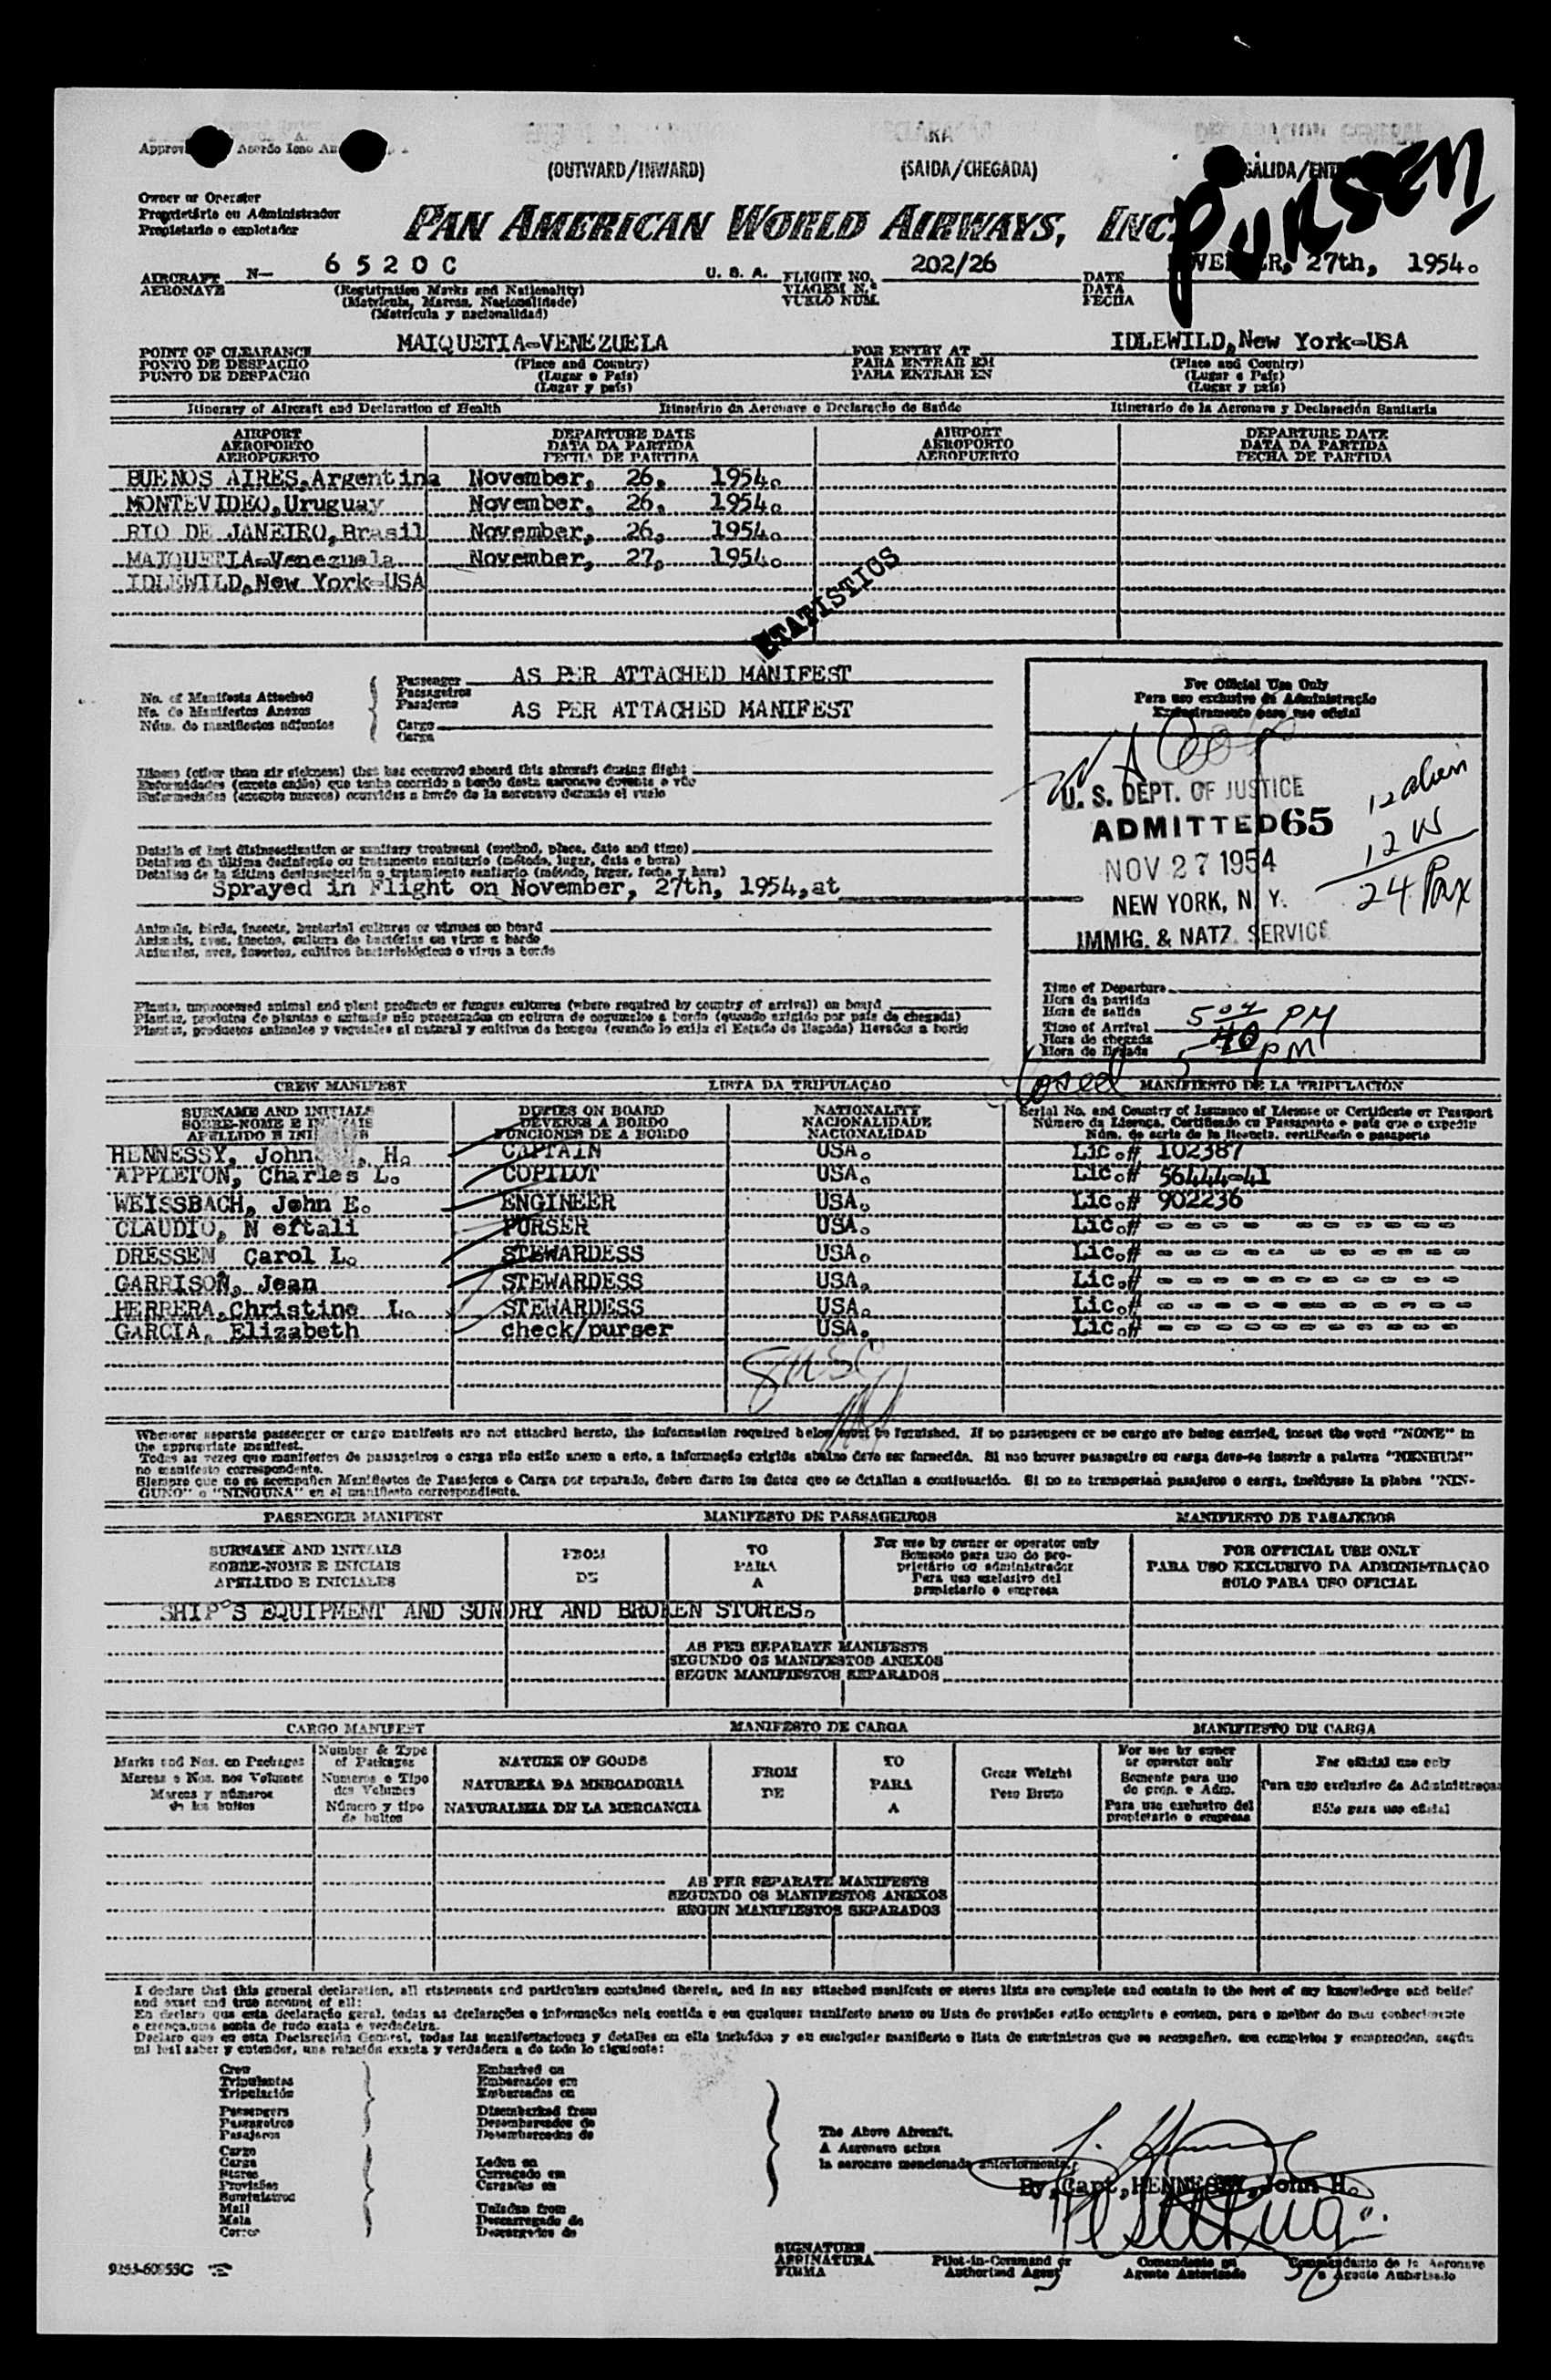 (OUTWARD/INWARD) (SAIDA/CHEGADA)
Owner or Operator
Proprietário ou Administrador
Propietario o explotador
PAN AMERICAN WORLD AIRWAYS, INC.
Pursen
AIRCRAFT N— 6520C U. S. A. FLIGHT NO. 202/26 DATE 27th, 1954.
AERONAVE (Registration Marks and Nationality) VIAGEM N.º DATA
(Matrícula, Marcas, Nacionalidade) VUELO NUM. FECHA
(Matrícula y nacionalidad)
POINT OF CLEARANCE MAIQUETIA-VENEZUELA FOR ENTRY AT IDLEWILD,New York-USA
PONTO DE DESPACHO (Place and Country) PARA ENTRAR EM (Place and Country)
PUNTO DE DESPACHO (Lugar e País) PARA ENTRAR EN (Lugar e País)
(Lugar y país) (Lugar y país)
Itinerary of Aircraft and Declaration of Health Itinerário da Aeronave e Declaração de Saúde Itinerario de la Aeronave y Declaración Sanitaria
AIRPORT DEPARTURE DATE AIRPORT DEPARTURE DATE
AEROPORTO DATA DA PARTIDA AEROPORTO DATA DA PARTIDA
AEROPUERTO FECHA DE PARTIDA AEROPUERTO FECHA DE PARTIDA
BUENOS AIRES,Argentina November, 26, 1954.
MONTEVIDEO,Uruguay November, 26, 1954.
RIO DE JANEIRO,Brasil November, 26, 1954.
MAIQUETIA-Venezuela November, 27, 1954.
IDLEWILD,New York-USA
STATISTICS
No. of Manifests Attached
No. de Manifestos Anexos
Núm. de manifiestos adjuntos
Passenger AS PER ATTACHED MANIFEST
Passageiros
Pasajeros
Cargo AS PER ATTACHED MANIFEST
Carga
For Official Use Only
Para uso exclusivo da Administração
Exclusivamente para uso oficial
U. S. DEPT. OF JUSTICE
ADMITTED 65
NOV 27 1954
NEW YORK, N. Y.
IMMIG. & NATZ. SERVICE
12 alien
12 W
24 Pax
Illness (other than air sickness) that has occurred aboard this aircraft during flight
Enfermidades (exceto enjôo) que tenha ocorrido a bordo desta aeronave durante o vôo
Enfermedades (excepto mareos) ocurridas a bordo de la aeronave durante el vuelo
Details of last disinsectization or sanitary treatment (method, place, date and time)
Detalhes da última desinfeção ou tratamento sanitario (método, lugar, data e hora)
Detalles de la última desinsectación o tratamiento sanitario (método, lugar, fecha y hora)
Sprayed in Flight on November, 27th, 1954,at
Animals, birds, insects, bacterial cultures or viruses on board
Animais, aves, insetos, cultura de bactérias ou virus a bordo
Animales, aves, insectos, cultivos bacteriológicos o virus a bordo
Plants, unprocessed animal and plant products or fungus cultures (where required by country of arrival) on board
Plantas, produtos de plantas e animais não processados ou cultura de cogumelos a bordo (quando exigido por país de chegada)
Plantas, productos animales y vegetales al natural y cultivos de hongos (cuando lo exija el Estado de llegada) llevados a bordo
Time of Departure
Hora da partida
Hora de salida
Time of Arrival
Hora de chegada
Hora de llegada
5 02 PM
5 40 PM
CREW MANIFEST LISTA DA TRIPULAÇAO MANIFIESTO DE LA TRIPULACIÓN
SURNAME AND INITIALS DUTIES ON BOARD NATIONALITY Serial No. and Country of Issuance of License or Certificate or Passport
SOBRE-NOME E INICIAIS DEVERES A BORDO NACIONALIDADE Número da Licença, Certificado ou Passaporte e país que o expedir
APELLIDO E INICIALES FUNCIONES DE A BORDO NACIONALIDAD Núm. de serie de la licencia, certificado o pasaporte
HENNESSY, John H. CAPTAIN USA. Lic.# 102387
APPLETON, Charles L. COPILOT USA. Lic.# 56444-41
WEISSBACH, John E. ENGINEER USA. Lic.# 902236
CLAUDIO, N eftali PURSER USA. Lic.# - - - - - - - - - -
DRESSEN Carol L. STEWARDESS USA. Lic.# - - - - - - - - - - -
GARRISON, Jean STEWARDESS USA. Lic.# - - - - - - - - - - -
HERRERA,Christine L. STEWARDESS USA. Lic.# - - - - - - - - - - -
GARCIA, Elizabeth check/purser USA. Lic.# - - - - - - - - - - -
8 USC
Whenever separate passenger or cargo manifests are not attached hereto, the information required below must be furnished. If no passengers or no cargo are being carried, insert the word "NONE" in
the appropriate manifest.
Todas as vezes que manifestos de passageiros e carga não estão anexo a esto, a informação exigida abaixo deve ser fornecida. Si nao houver passageiro ou carga deve-se inserir a palavra "NENHUM"
no manifesto correspondente.
Siempre que no se acompañen Manifiestos de Pasajeros o Carga por separado, deben darse los datos que se detallan a continuación. Si no se transportan pasajeros o carga, inclúyase la plabra "NIN-
GUNO" o "NINGUNA" en el manifiesto correspondiente.
PASSENGER MANIFEST MANIFESTO DE PASSAGEIROS MANIFIESTO DE PASAJEROS
SURNAME AND INITIALS FROM TO For use by owner or operator only FOR OFFICIAL USE ONLY
SOBRE-NOME E INICIAIS DE PARA Somente para uso do proprietário ou administrador PARA USO EXCLUSIVO DA ADMINISTRAÇÃO
APELLIDO E INICIALES A Para uso exclusivo del propietario o empresa SOLO PARA USO OFICIAL
SHIP'S EQUIPMENT AND SUNDRY AND BROKEN STORES.
AS PER SEPARATE MANIFESTS
SEGUNDO OS MANIFESTOS ANEXOS
SEGUN MANIFIESTOS SEPARADOS
CARGO MANIFEST MANIFESTO DE CARGA MANIFIESTO DE CARGA
Marks and Nos. on Packages Number & Type of Packages NATURE OF GOODS FROM TO Gross Weight For use by owner or operator only For official use only
Marcas e Nos. nos Volumes Numeros e Tipo dos Volumes NATUREZA DA MERCADORIA DE PARA Peso Bruto Somente para uso do prop. e Adm. Para uso exclusivo da Administraçao
Marcas y números de los bultos Número y tipo de bultos NATURALEZA DE LA MERCANCIA A Para uso exclusivo del propietario o empresa Sólo para uso oficial
AS PER SEPARATE MANIFESTS
SEGUNDO OS MANIFESTOS ANEXOS
SEGUN MANIFIESTOS SEPARADOS
I declare that this general declaration, all statements and particulars contained therein, and in any attached manifests or stores lists are complete and contain to the best of my knowledge and belief
and exact and true account of all:
Eu declaro que esta declaração geral, todas as declarações e informações nela contida e em qualquer manifesto anexo ou lista de provisões estão completo e contem, para o melhor do meu conhecimento
e crença,uma conta de tudo exata e verdadeira.
Declaro que en esta Declaración General, todas las manifestaciones y detalles en ella incluidos y en cualquier manifiesto o lista de suministros que se acompañen, son completos y comprenden, según
mi leal saber y entender, una relación exacta y verdadera a de todo lo siguiente:
Crew Embarked on
Tripulantes Embarcados em
Tripulación Embarcados en
Passengers Disembarked from
Passageiros Desembarcados de
Pasajeros Desembarcados de
Cargo
Carga
Stores Laden on
Provisões Carregado em
Suministros Cargados en
Mail Unladen from
Mala Descarregado de
Correo Descargados de
The Above Aircraft.
A Aeronave acima
la aeronave mencionada anteriormente.
By, Capt, HENNESSY, John H.
SIGNATURE Pilot-in-Command or Comandante ou Comandante de la Aeronave
ASSINATURA Authorized Agent Agente Autorizado o Agente Autorizado
FIRMA